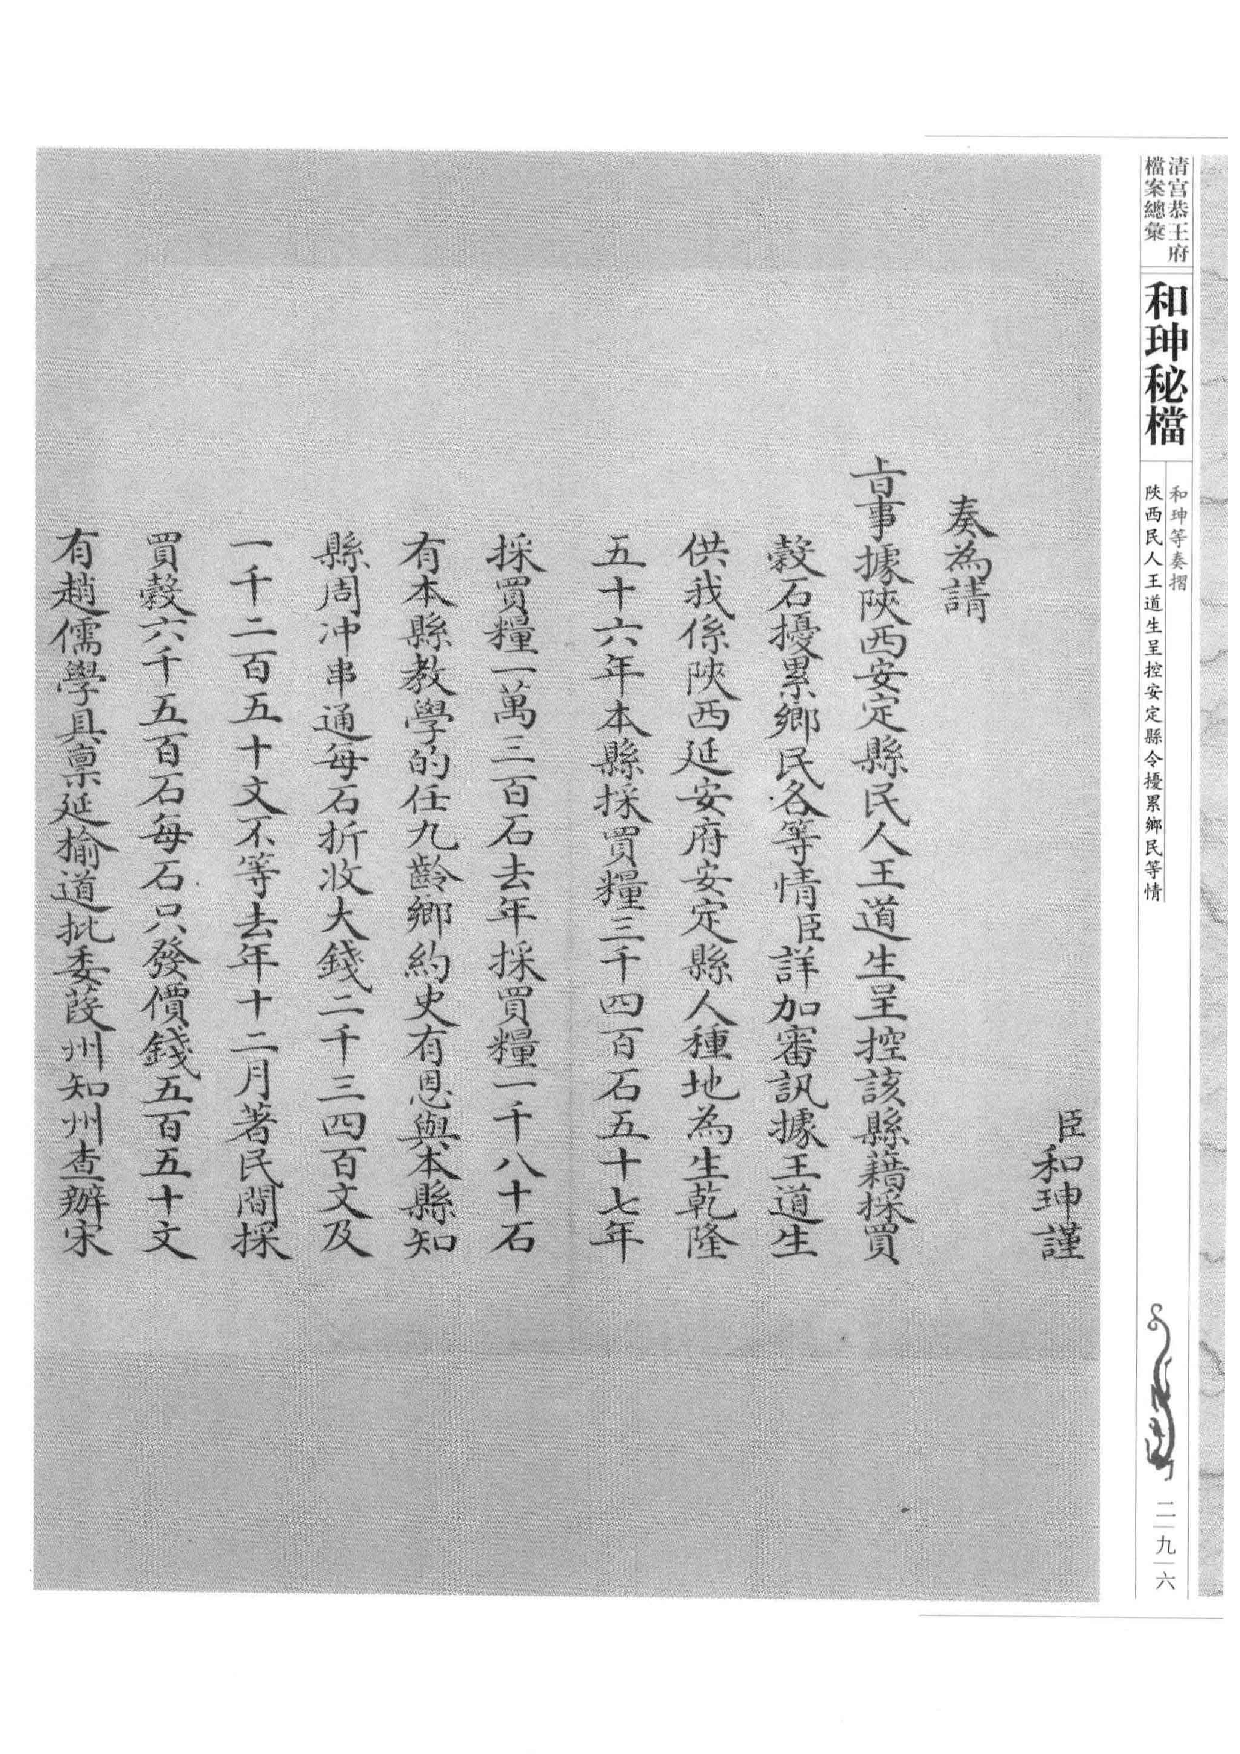 清宫恭王府
檔案總彙
和珅秘檔
和珅等奏摺
陝西民人王道生呈控安定縣令擾累鄉民等情
二九六
臣和珅謹
奏為請
旨事據陝西安定縣民人王道生呈控該縣藉採買
穀石擾累鄉民各等情臣詳加審訊據王道生
供我係陝西延安府安定縣人種地為生乾隆
五十六年本縣採買糧三千四百石五十七年
採買糧一萬三百石去年採買糧一千八十石
有本縣教學的任九齡鄉約史有恩與本縣知
縣周冲串通每石折收大錢二千三四百文及
一千二百五十文不等去年十二月著民間採
買穀六千五百石每石只發價錢五百五十文
有趙儒學具稟延榆道批委葭州知州查辦宋